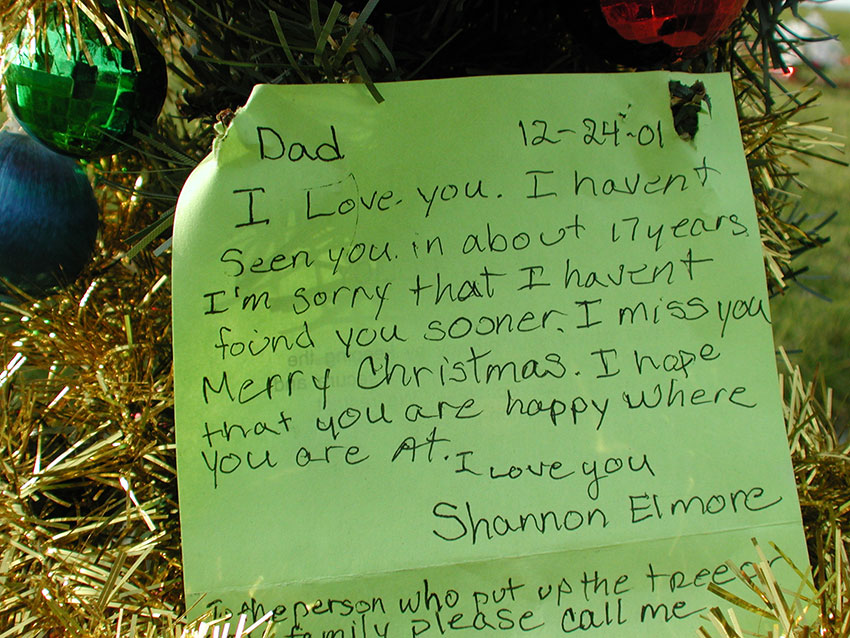 Dad 12-24-01
I Love you. I havent
Seen you in about 17 years.
I'm sorry that I havent
found you sooner. I miss you
Merry Christmas. I hope
that you are happy where
you are At. I Love you
Shannon Elmore
To the person who put up the tree or
family please call me